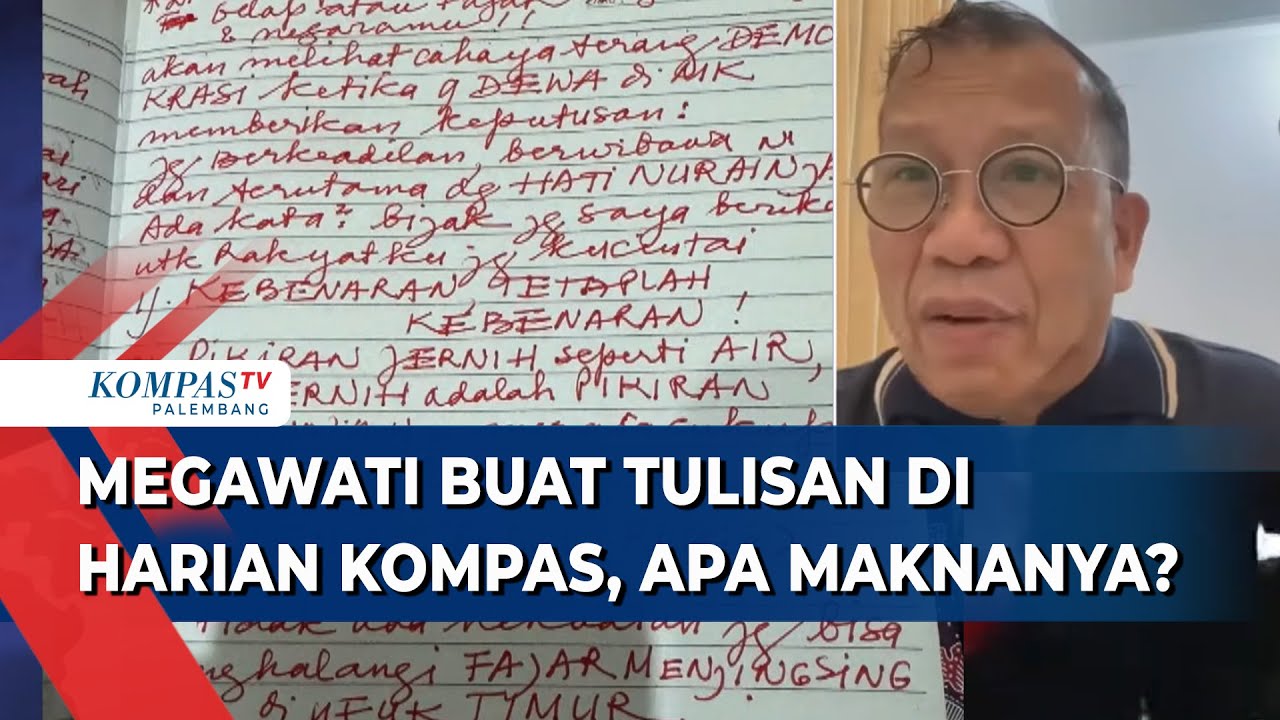 gelap atau Fajar
& negaramu!!
akan melihat cahaya terang DEMO
KRASI ketika 9 DEWA di MK
memberikan keputusan:
yg Berkeadilan, berwibawa
dan terutama dg HATI NURAINYA
Ada kata² bijak yg saya berika
utk Rakyatku yg kucintai
KEBENARAN TETAPLAH
KEBENARAN!
PIKIRAN JERNIH seperti AIR,
ERNIH adalah PIKIRAN
KOMPAS TV
PALEMBANG
MEGAWATI BUAT TULISAN DI
HARIAN KOMPAS, APA MAKNANYA?
Tidak ada kekuatan yg bisa
nghalangi FAJAR MENJINGSING
di UFUK TIMUR.